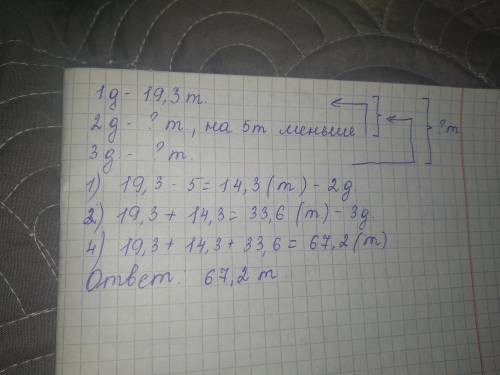 1д - 19,3 т.
2д - ? т, на 5т меньше
3д - ? т. ? т.
1) 19,3 - 5 = 14,3 (т) - 2д
2) 19,3 + 14,3 = 33,6 (т) - 3д.
4) 19,3 + 14,3 + 33,6 = 67,2 (т)
Ответ: 67,2 т.